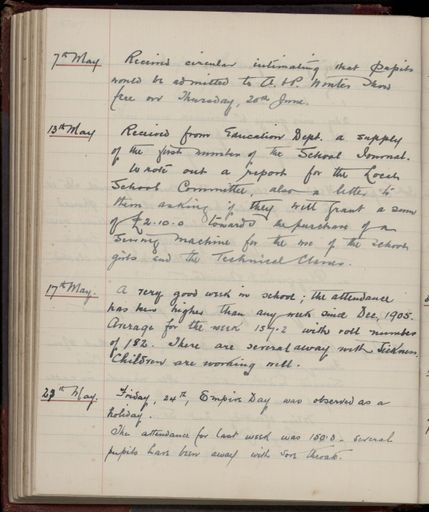 7th May. Received circular intimating that pupils
would be admitted to A. & P. Winter Show
free on Thursday, 20th June.
13th May Received from Education Dept. a supply
of the first number of the School Journal.
Wrote out a report for the Local
School Committee, also a letter to
them asking if they will grant a sum
of £2.10.0 towards the purchase of a
Sewing Machine for the use of the school
girls and the Technical Classes.
17th May. A very good week in school; the attendance
has been higher than any week since Dec, 1905.
Average for the week 157.2 with roll number
of 182. There are several away with sickness.
Children are working well.
23th May. Friday, 24th, Empire Day was observed as a
holiday.
The attendance for last week was 150.0 - several
pupils have been away with sore throats.